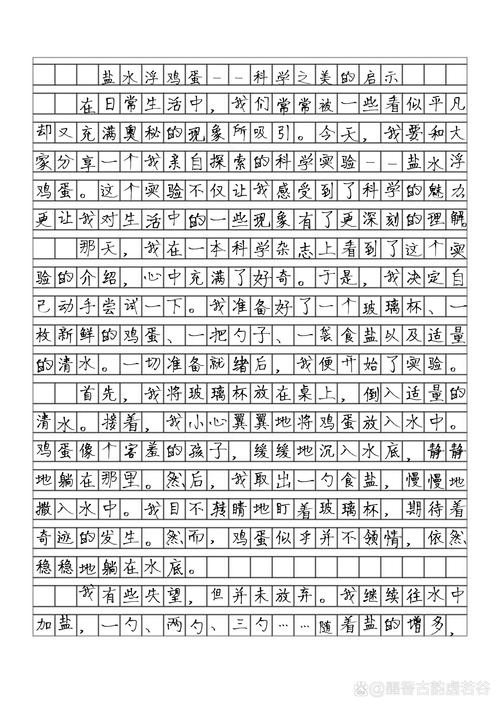 盐水浮鸡蛋--科学之美的启示
在日常生活中，我们常常被一些看似平凡
却又充满奥秘的现象所吸引。今天，我要和大
家分享一个我亲自探索的科学实验--盐水浮
鸡蛋。这个实验不仅让我感受到了科学的魅力
更让我对生活中的一些现象有了更深刻的理解
那天，我在一本科学杂志上看到了这个实
验的介绍，心中充满了好奇。于是，我决定自
己动手尝试一下。我准备好了一个玻璃杯、一
枚新鲜的鸡蛋、一把勺子、一袋食盐以及适量
的清水。一切准备就绪后，我便开始了实验。
首先，我将玻璃杯放在桌上，倒入适量的
清水。接着，我小心翼翼地将鸡蛋放入水中。
鸡蛋像个害羞的孩子，缓缓地沉入水底，静静
地躺在那里。然后，我取出一勺食盐，慢慢地
撒入水中。我目不转睛地盯着玻璃杯，期待着
奇迹的发生。然而，鸡蛋似乎并不领情，依然
稳稳地躺在水底。
我有些失望，但并未放弃。我继续往水中
加盐，一勺、两勺、三勺……随着盐的增多，